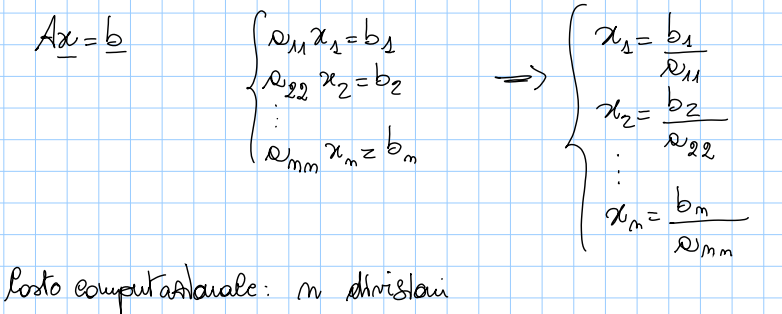 Ax = b
a₁₁ x₁ = b₁
a₂₂ x₂ = b₂
⋮
aₙₙ xₙ = bₙ
⟹
x₁ = b₁ / a₁₁
x₂ = b₂ / a₂₂
⋮
xₙ = bₙ / aₙₙ
Costo computazionale: n divisioni